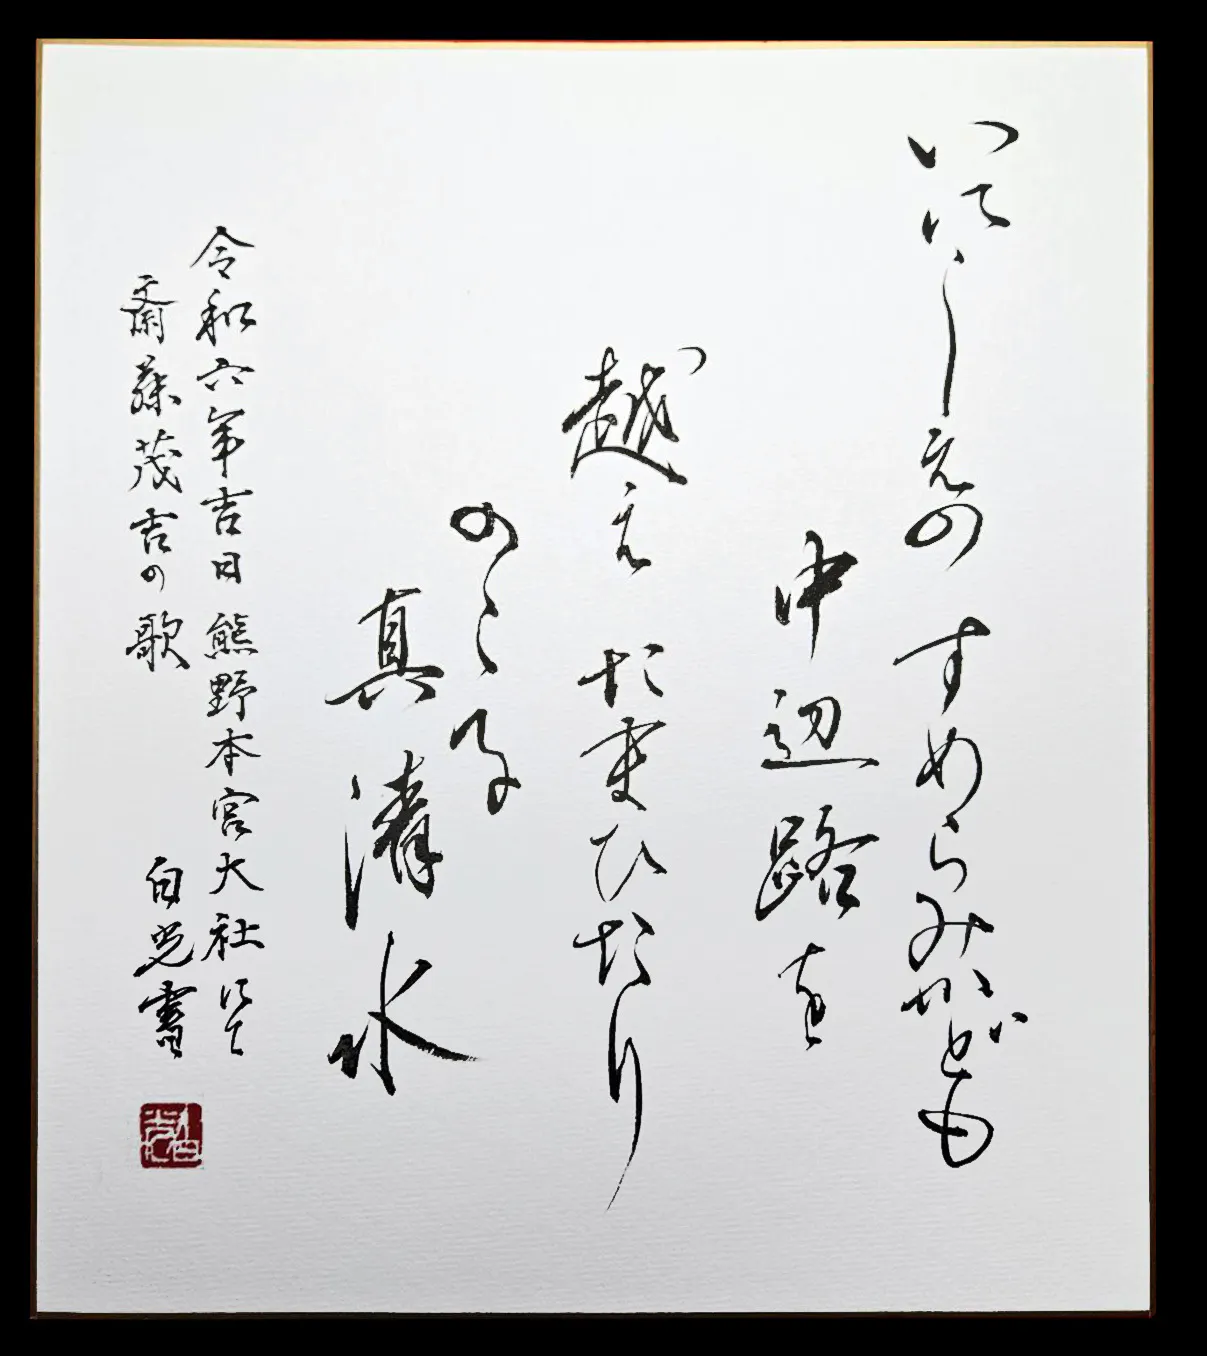 いにしえの すめらみかども
中辺路を
越え たまひたり
のこる
真清水
令和六年吉日 熊野本宮大社にて
斎藤茂吉の歌
白光書
白光